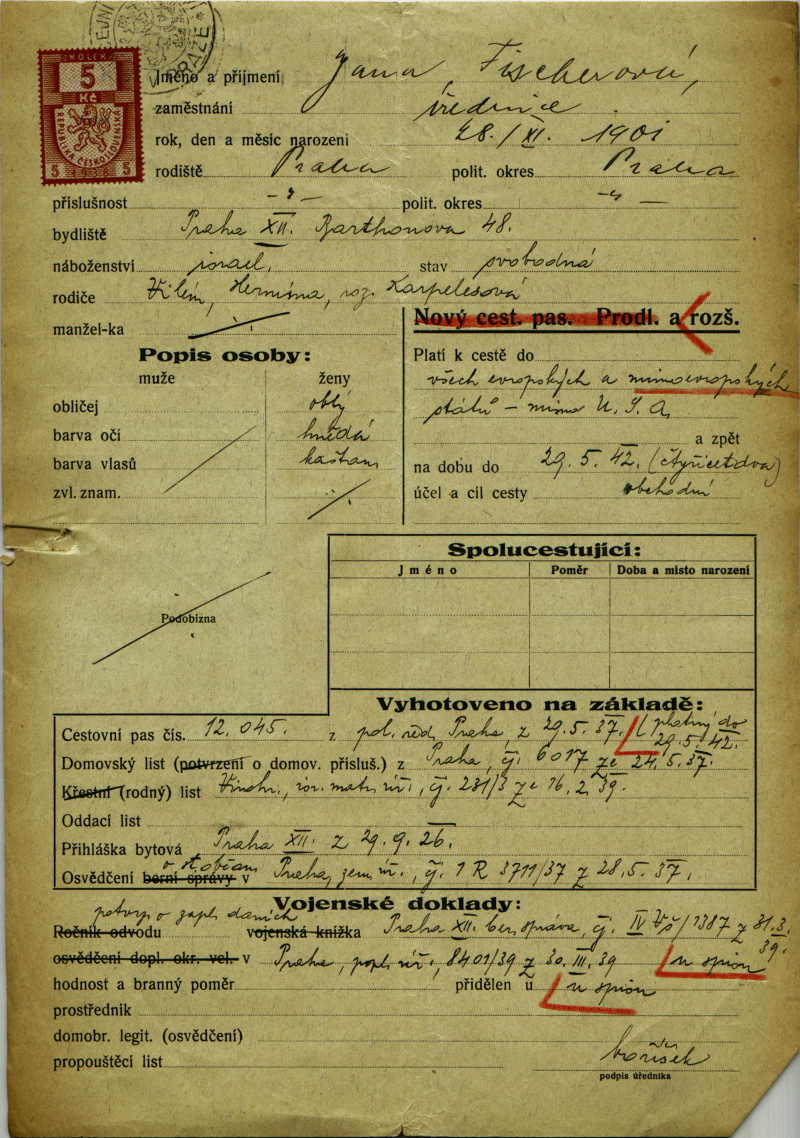 KOLEK
5
Kč
REPUBLIKA ČESKOSLOVENSKÁ
5 1938 5
Jméno a příjmení Jana Fischerová,
zaměstnání úřednice
rok, den a měsíc narození 28./XI. 1901
rodiště Praha polit. okres Praha
příslušnost -"- polit. okres -"-
bydliště Praha XII. Barthonova 48.
náboženství israel. stav svobodná
rodiče Vilém, Hermína, roz. Karpelesová
manžel-ka
Nový cest. pas. Prodl. a rozš.
Popis osoby:
muže ženy
obličej oblý
barva očí hnědá
barva vlasů kaštan.
zvl. znam.
Platí k cestě do
všech evropských a mimoevropských
států – mimo U.S.A.
a zpět
na dobu do 29. 5. 42. (čtyřicetdva)
účel a cíl cesty obchodní
Podobizna
Spolucestující:
Jméno Poměr Doba a místo narození
Vyhotoveno na základě:
Cestovní pas čís. 12.045. z pol. řed. Praha, z 29.5.37. (platný do 29.5.42.
Domovský list (potvrzení o domov. přísluš.) z Praha, čj. 6017 ze 24.5.37.
Křestní (rodný) list Vinohr., isr. mat. úř., čj. 231/3 ze 16.2.39.
Oddací list
Přihláška bytová Praha XII. z 29.9.26.
Osvědčení berní správy v o st. občan. Praha, zem. úř., čj. 1 R 3711/37 z 28.5.37.
Vojenské doklady:
potvrz. o zapl. daních
Ročník odvodu vojenská knížka Praha XII. ber. správa, čj. IV Vš/1387 z 31.3.39.
osvědčení dopl. okr. vel. v Praha, popl. úř., 8401/39 z 30. III. 39
hodnost a branný poměr přidělen u
prostředník
domobr. legit. (osvědčení)
propouštěcí list
podpis úředníka